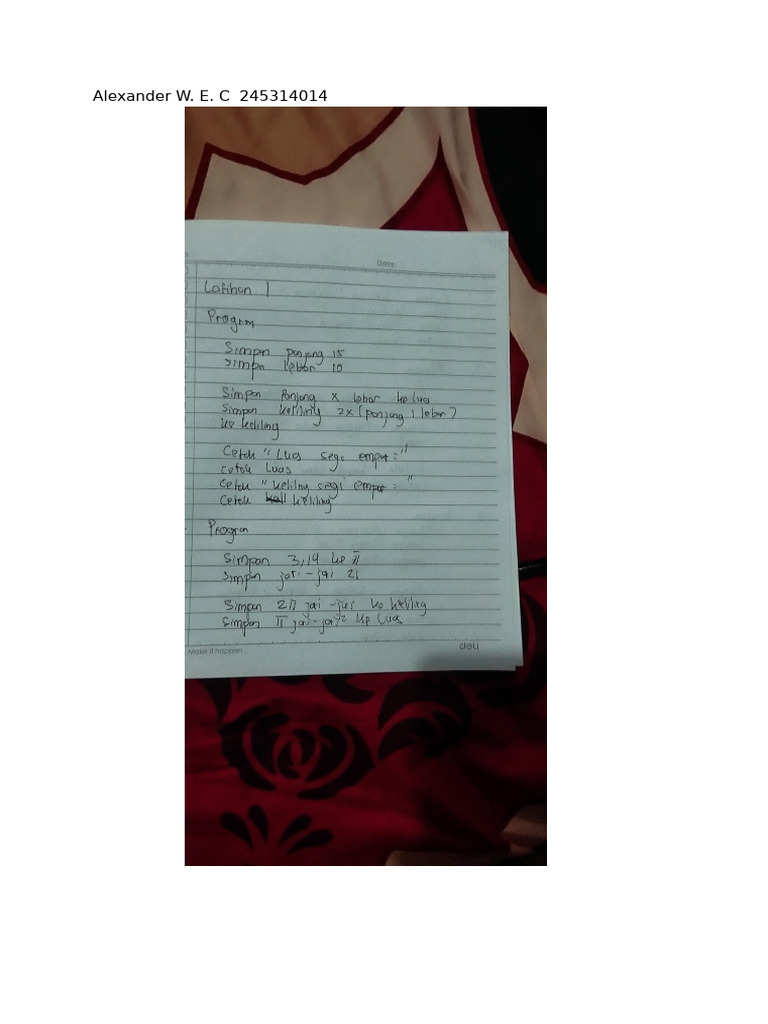 Alexander W. E. C  245314014
Date:
Latihan 1
Program
Simpan panjang 15
Simpan lebar 10
Simpan Panjang x lebar ke lua
Simpan keliling 2x (panjang + lebar)
ke keliling
Cetak "Luas segi empat ="
Cetak Luas
Cetak "keliling segi empat = "
Cetak keliling
Program
Simpan 3,14 ke π
Simpan jari-jari 21
Simpan 2π jari-jari ke keliling
Simpan π jari-jari² ke Luas
Make it happen.
deli